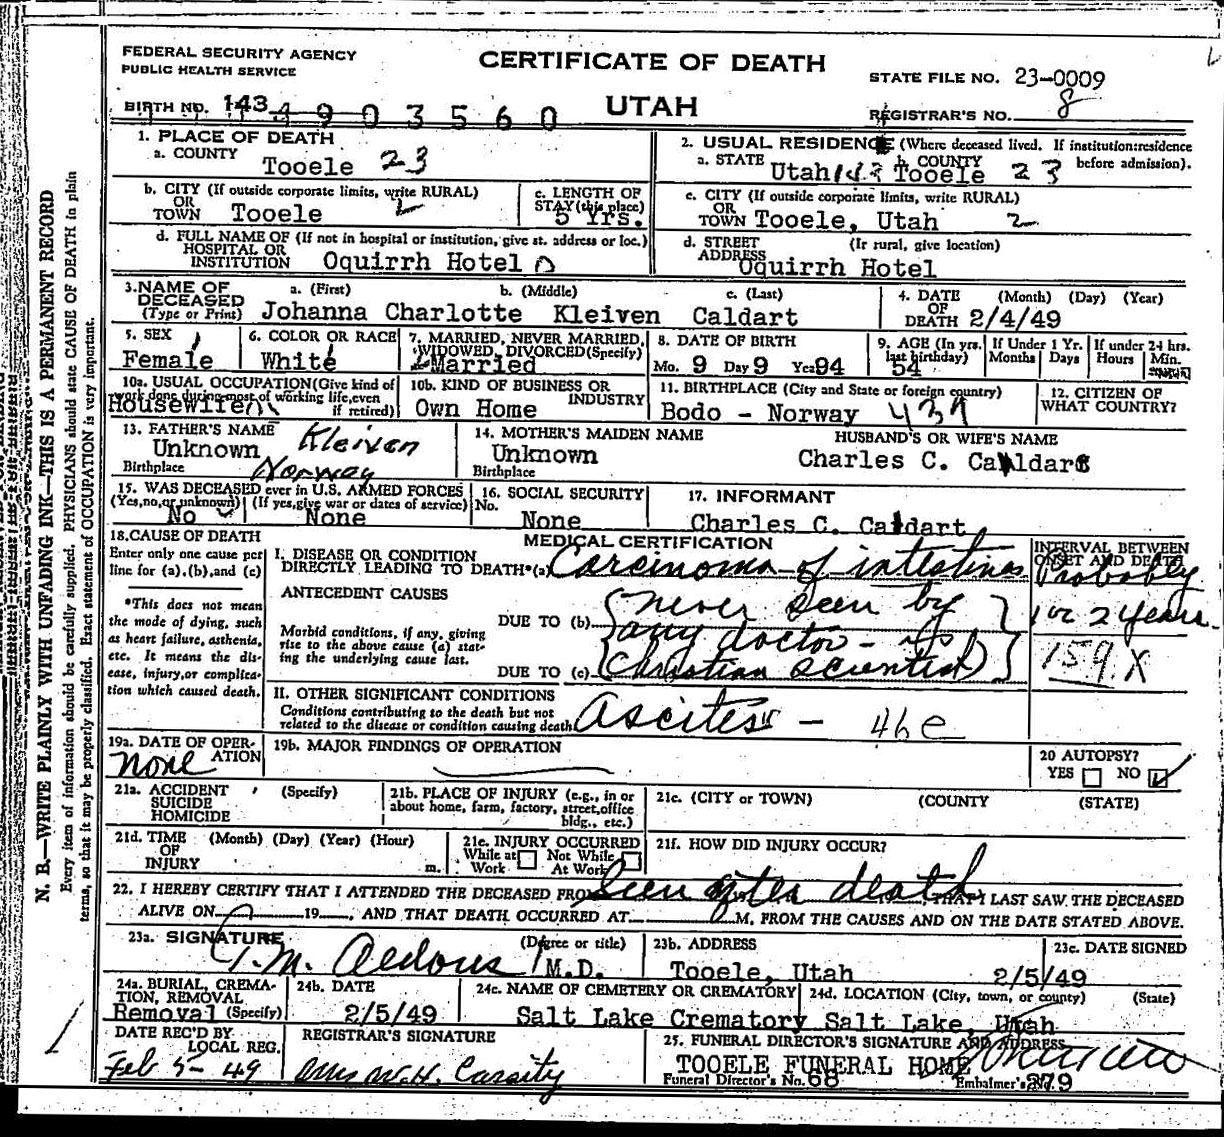 FEDERAL SECURITY AGENCY
PUBLIC HEALTH SERVICE
CERTIFICATE OF DEATH
UTAH
STATE FILE NO. 23-0009
REGISTRAR'S NO. 8
BIRTH NO. 143
4903560
N. B.—WRITE PLAINLY WITH UNFADING INK—THIS IS A PERMANENT RECORD
Every item of information should be carefully supplied. PHYSICIANS should state CAUSE OF DEATH in plain
terms, so that it may be properly classified. Exact statement of OCCUPATION is very important.
1. PLACE OF DEATH
a. COUNTY
Tooele 23
2. USUAL RESIDENCE (Where deceased lived. If institution:residence
before admission).
a. STATE Utah 143 b. COUNTY Tooele 23
b. CITY (If outside corporate limits, write RURAL)
OR
TOWN Tooele 2
c. LENGTH OF
STAY (this place)
5 Yrs.
c. CITY (If outside corporate limits, write RURAL)
OR
TOWN Tooele, Utah 2
d. FULL NAME OF (If not in hospital or institution, give st. address or loc.)
HOSPITAL OR
INSTITUTION Oquirrh Hotel
d. STREET (If rural, give location)
ADDRESS
Oquirrh Hotel
3. NAME OF
DECEASED
(Type or Print)
a. (First) b. (Middle) c. (Last)
Johanna Charlotte Kleiven Caldart
4. DATE (Month) (Day) (Year)
OF
DEATH 2/4/49
5. SEX 1
Female
6. COLOR OR RACE
White 1
7. MARRIED, NEVER MARRIED,
WIDOWED, DIVORCED (Specify)
Married
8. DATE OF BIRTH
Mo. 9 Day 9 Yea 94
9. AGE (In yrs.
last birthday)
54
If Under 1 Yr.
Months Days
If under 24 hrs.
Hours Min.
10a. USUAL OCCUPATION (Give kind of
work done during most of working life, even
if retired)
Housewife
10b. KIND OF BUSINESS OR
INDUSTRY
Own Home
11. BIRTHPLACE (City and State or foreign country)
Bodo - Norway
12. CITIZEN OF
WHAT COUNTRY?
13. FATHER'S NAME Kleiven
Unknown
Birthplace Norway
14. MOTHER'S MAIDEN NAME
Unknown
Birthplace
HUSBAND'S OR WIFE'S NAME
Charles C. Caldart
15. WAS DECEASED ever in U.S. ARMED FORCES
(Yes, no, or unknown) (If yes, give war or dates of service)
No None
16. SOCIAL SECURITY
No.
None
17. INFORMANT
Charles C. Caldart
18. CAUSE OF DEATH
Enter only one cause per
line for (a), (b), and (c)
*This does not mean
the mode of dying, such
as heart failure, asthenia,
etc. It means the dis-
ease, injury, or complica-
tion which caused death.
MEDICAL CERTIFICATION
INTERVAL BETWEEN
ONSET AND DEATH
I. DISEASE OR CONDITION
DIRECTLY LEADING TO DEATH*(a) Carcinoma of intestines
Probably
1 or 2 years.
159.X
ANTECEDENT CAUSES
Morbid conditions, if any, giving
rise to the above cause (a) stat-
ing the underlying cause last.
DUE TO (b) (never seen by
any doctor -
DUE TO (c) (Christian Scientist)
II. OTHER SIGNIFICANT CONDITIONS
Conditions contributing to the death but not
related to the disease or condition causing death
Ascites -
19a. DATE OF OPER-
ATION
none
19b. MAJOR FINDINGS OF OPERATION
20 AUTOPSY?
YES NO
21a. ACCIDENT (Specify)
SUICIDE
HOMICIDE
21b. PLACE OF INJURY (e.g., in or
about home, farm, factory, street, office
bldg., etc.)
21c. (CITY or TOWN) (COUNTY) (STATE)
21d. TIME (Month) (Day) (Year) (Hour)
OF
INJURY m.
21e. INJURY OCCURRED
While at Not While
Work At Work
21f. HOW DID INJURY OCCUR?
22. I HEREBY CERTIFY THAT I ATTENDED THE DECEASED FROM Seen after death THAT I LAST SAW THE DECEASED
ALIVE ON 19 , AND THAT DEATH OCCURRED AT M, FROM THE CAUSES AND ON THE DATE STATED ABOVE.
23a. SIGNATURE (Degree or title)
M.D.
23b. ADDRESS
Tooele, Utah
23c. DATE SIGNED
2/5/49
24a. BURIAL, CREMA-
TION, REMOVAL
Removal (Specify)
24b. DATE
2/5/49
24c. NAME OF CEMETERY OR CREMATORY
Salt Lake Crematory
24d. LOCATION (City, town, or county) (State)
Salt Lake, Utah
DATE REC'D BY
LOCAL REG.
Feb 5-49
REGISTRAR'S SIGNATURE
25. FUNERAL DIRECTOR'S SIGNATURE AND ADDRESS
TOOELE FUNERAL HOME
Funeral Director's No. 68 Embalmer's No. 279